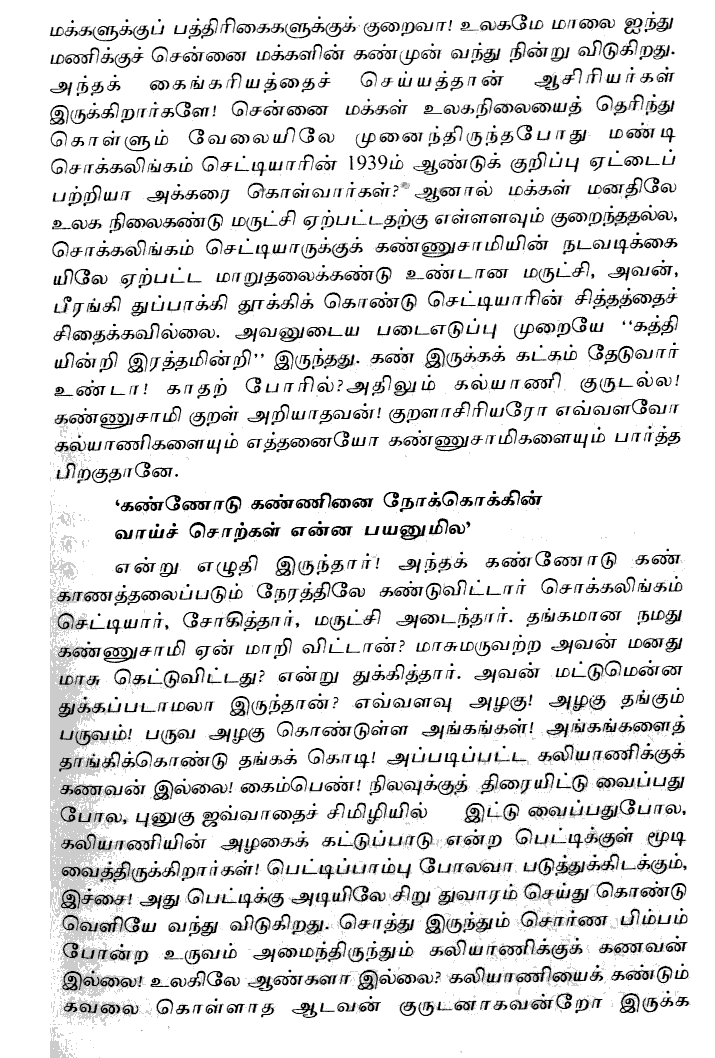 மக்களுக்குப் பத்திரிகைகளுக்குக் குறைவா! உலகமே மாலை ஐந்து
மணிக்குச் சென்னை மக்களின் கண்முன் வந்து நின்று விடுகிறது.
அந்தக் கைங்கரியத்தைச் செய்யத்தான் ஆசிரியர்கள்
இருக்கிறார்களே! சென்னை மக்கள் உலகநிலையைத் தெரிந்து
கொள்ளும் வேலையிலே முனைந்திருந்தபோது மண்டி
சொக்கலிங்கம் செட்டியாரின் 1939ம் ஆண்டுக் குறிப்பு ஏட்டைப்
பற்றியா அக்கரை கொள்வார்கள்? ஆனால் மக்கள் மனதிலே
உலக நிலைகண்டு மருட்சி ஏற்பட்டதற்கு எள்ளளவும் குறைந்ததல்ல,
சொக்கலிங்கம் செட்டியாருக்குக் கண்ணுசாமியின் நடவடிக்கை
யிலே ஏற்பட்ட மாறுதலைக்கண்டு உண்டான மருட்சி, அவன்,
பீரங்கி துப்பாக்கி தூக்கிக் கொண்டு செட்டியாரின் சித்தத்தைச்
சிதைக்கவில்லை. அவனுடைய படைஎடுப்பு முறையே “கத்தி
யின்றி இரத்தமின்றி” இருந்தது. கண் இருக்கக் கட்கம் தேடுவார்
உண்டா! காதற் போரில்?அதிலும் கல்யாணி குருடல்ல!
கண்ணுசாமி குறள் அறியாதவன்! குறளாசிரியரோ எவ்வளவோ
கல்யாணிகளையும் எத்தனையோ கண்ணுசாமிகளையும் பார்த்த
பிறகுதானே.
‘கண்ணோடு கண்ணினை நோக்கொக்கின்
வாய்ச் சொற்கள் என்ன பயனுமில’
என்று எழுதி இருந்தார்! அந்தக் கண்ணோடு கண்
காணத்தலைப்படும் நேரத்திலே கண்டுவிட்டார் சொக்கலிங்கம்
செட்டியார், சோகித்தார், மருட்சி அடைந்தார். தங்கமான நமது
கண்ணுசாமி ஏன் மாறி விட்டான்? மாசுமருவற்ற அவன் மனது
மாசு கெட்டுவிட்டது? என்று துக்கித்தார். அவன் மட்டுமென்ன
துக்கப்படாமலா இருந்தான்? எவ்வளவு அழகு! அழகு தங்கும்
பருவம்! பருவ அழகு கொண்டுள்ள அங்கங்கள்! அங்கங்களைத்
தாங்கிக்கொண்டு தங்கக் கொடி! அப்படிப்பட்ட கலியாணிக்குக்
கணவன் இல்லை! கைம்பெண்! நிலவுக்குத் திரையிட்டு வைப்பது
போல, புனுகு ஜவ்வாதைச் சிமிழியில் இட்டு வைப்பதுபோல,
கலியாணியின் அழகைக் கட்டுப்பாடு என்ற பெட்டிக்குள் மூடி
வைத்திருக்கிறார்கள்! பெட்டிப்பாம்பு போலவா படுத்துக்கிடக்கும்,
இச்சை! அது பெட்டிக்கு அடியிலே சிறு துவாரம் செய்து கொண்டு
வெளியே வந்து விடுகிறது. சொத்து இருந்தும் சொர்ண பிம்பம்
போன்ற உருவம் அமைந்திருந்தும் கலியாணிக்குக் கணவன்
இல்லை! உலகிலே ஆண்களா இல்லை? கலியாணியைக் கண்டும்
கவலை கொள்ளாத ஆடவன் குருடனாகவன்றோ இருக்க